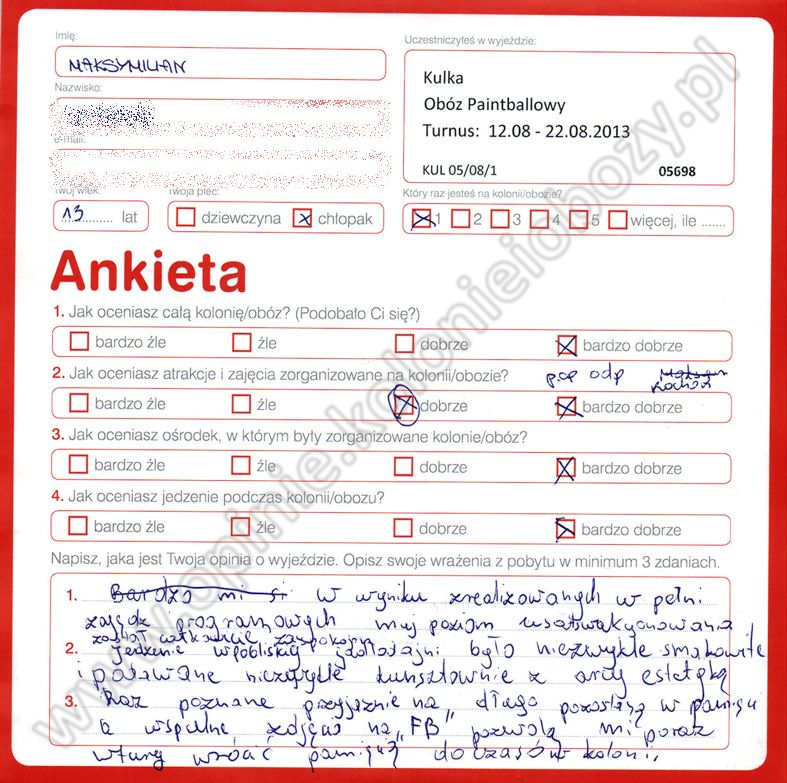 Imię:
MAKSYMILIAN
Nazwisko:
e-mail:
Twój wiek:
13 lat
Twoja płeć:
dziewczyna x chłopak
Uczestniczyłeś w wyjeździe:
Kulka
Obóz Paintballowy
Turnus: 12.08 - 22.08.2013
KUL 05/08/1 05698
Który raz jesteś na kolonii/obozie?
x 1 2 3 4 5 więcej, ile .......
Ankieta
1. Jak oceniasz całą kolonię/obóz? (Podobało Ci się?)
bardzo źle źle dobrze x bardzo dobrze
2. Jak oceniasz atrakcje i zajęcia zorganizowane na kolonii/obozie? pop odp
bardzo źle źle x dobrze x bardzo dobrze
3. Jak oceniasz ośrodek, w którym były zorganizowane kolonie/obóz?
bardzo źle źle dobrze x bardzo dobrze
4. Jak oceniasz jedzenie podczas kolonii/obozu?
bardzo źle źle dobrze x bardzo dobrze
Napisz, jaka jest Twoja opinia o wyjeździe. Opisz swoje wrażenia z pobytu w minimum 3 zdaniach.
1. Bardzo mi si w wyniku zrealizowanych w pełni
zajęć programowych mój poziom usatysfakcjonowania
został zaspokojony
2. Jedzenie w pobliskiej jadłodajni było niezwykle smakowite
i podawane niezwykle kunsztownie z
3. Raz poznane przyjaźnie na długo pozostaną w pamięci
a wspólne zdjęcia na "FB" pozwolą mi poraz
wtóry wrócić pamięcią do czasów kolonii.
www.opinie.kolonieiobozy.pl